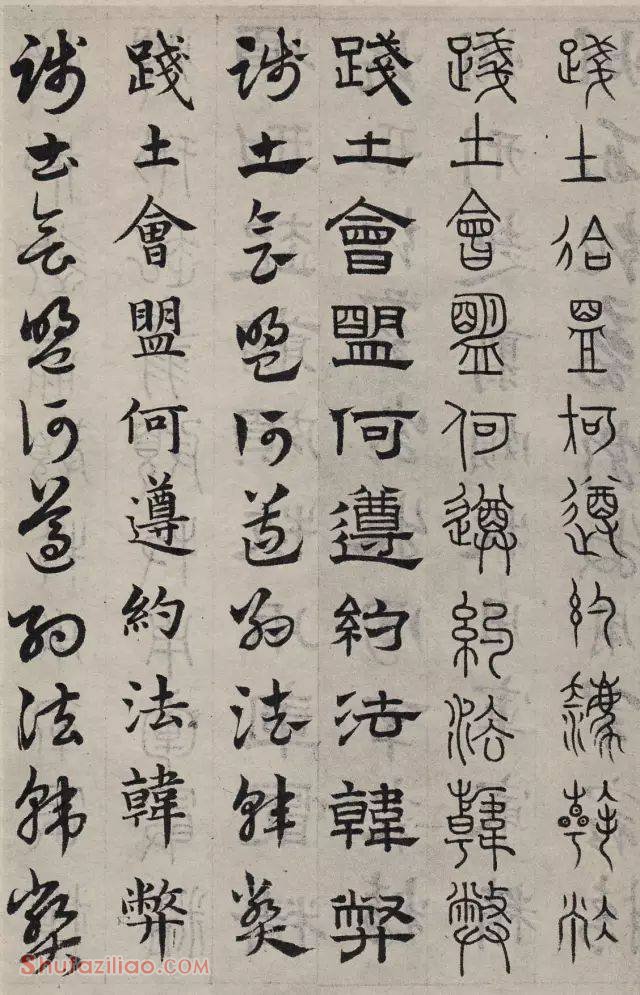 踐土會盟何遵約法韓弊
踐土會盟何遵約法韓弊
踐土會盟何遵約法韓弊
踐土會盟何遵約法韓弊
踐土會盟何遵約法韓弊
踐土會盟何遵約法韓弊
Shufaziliao.com